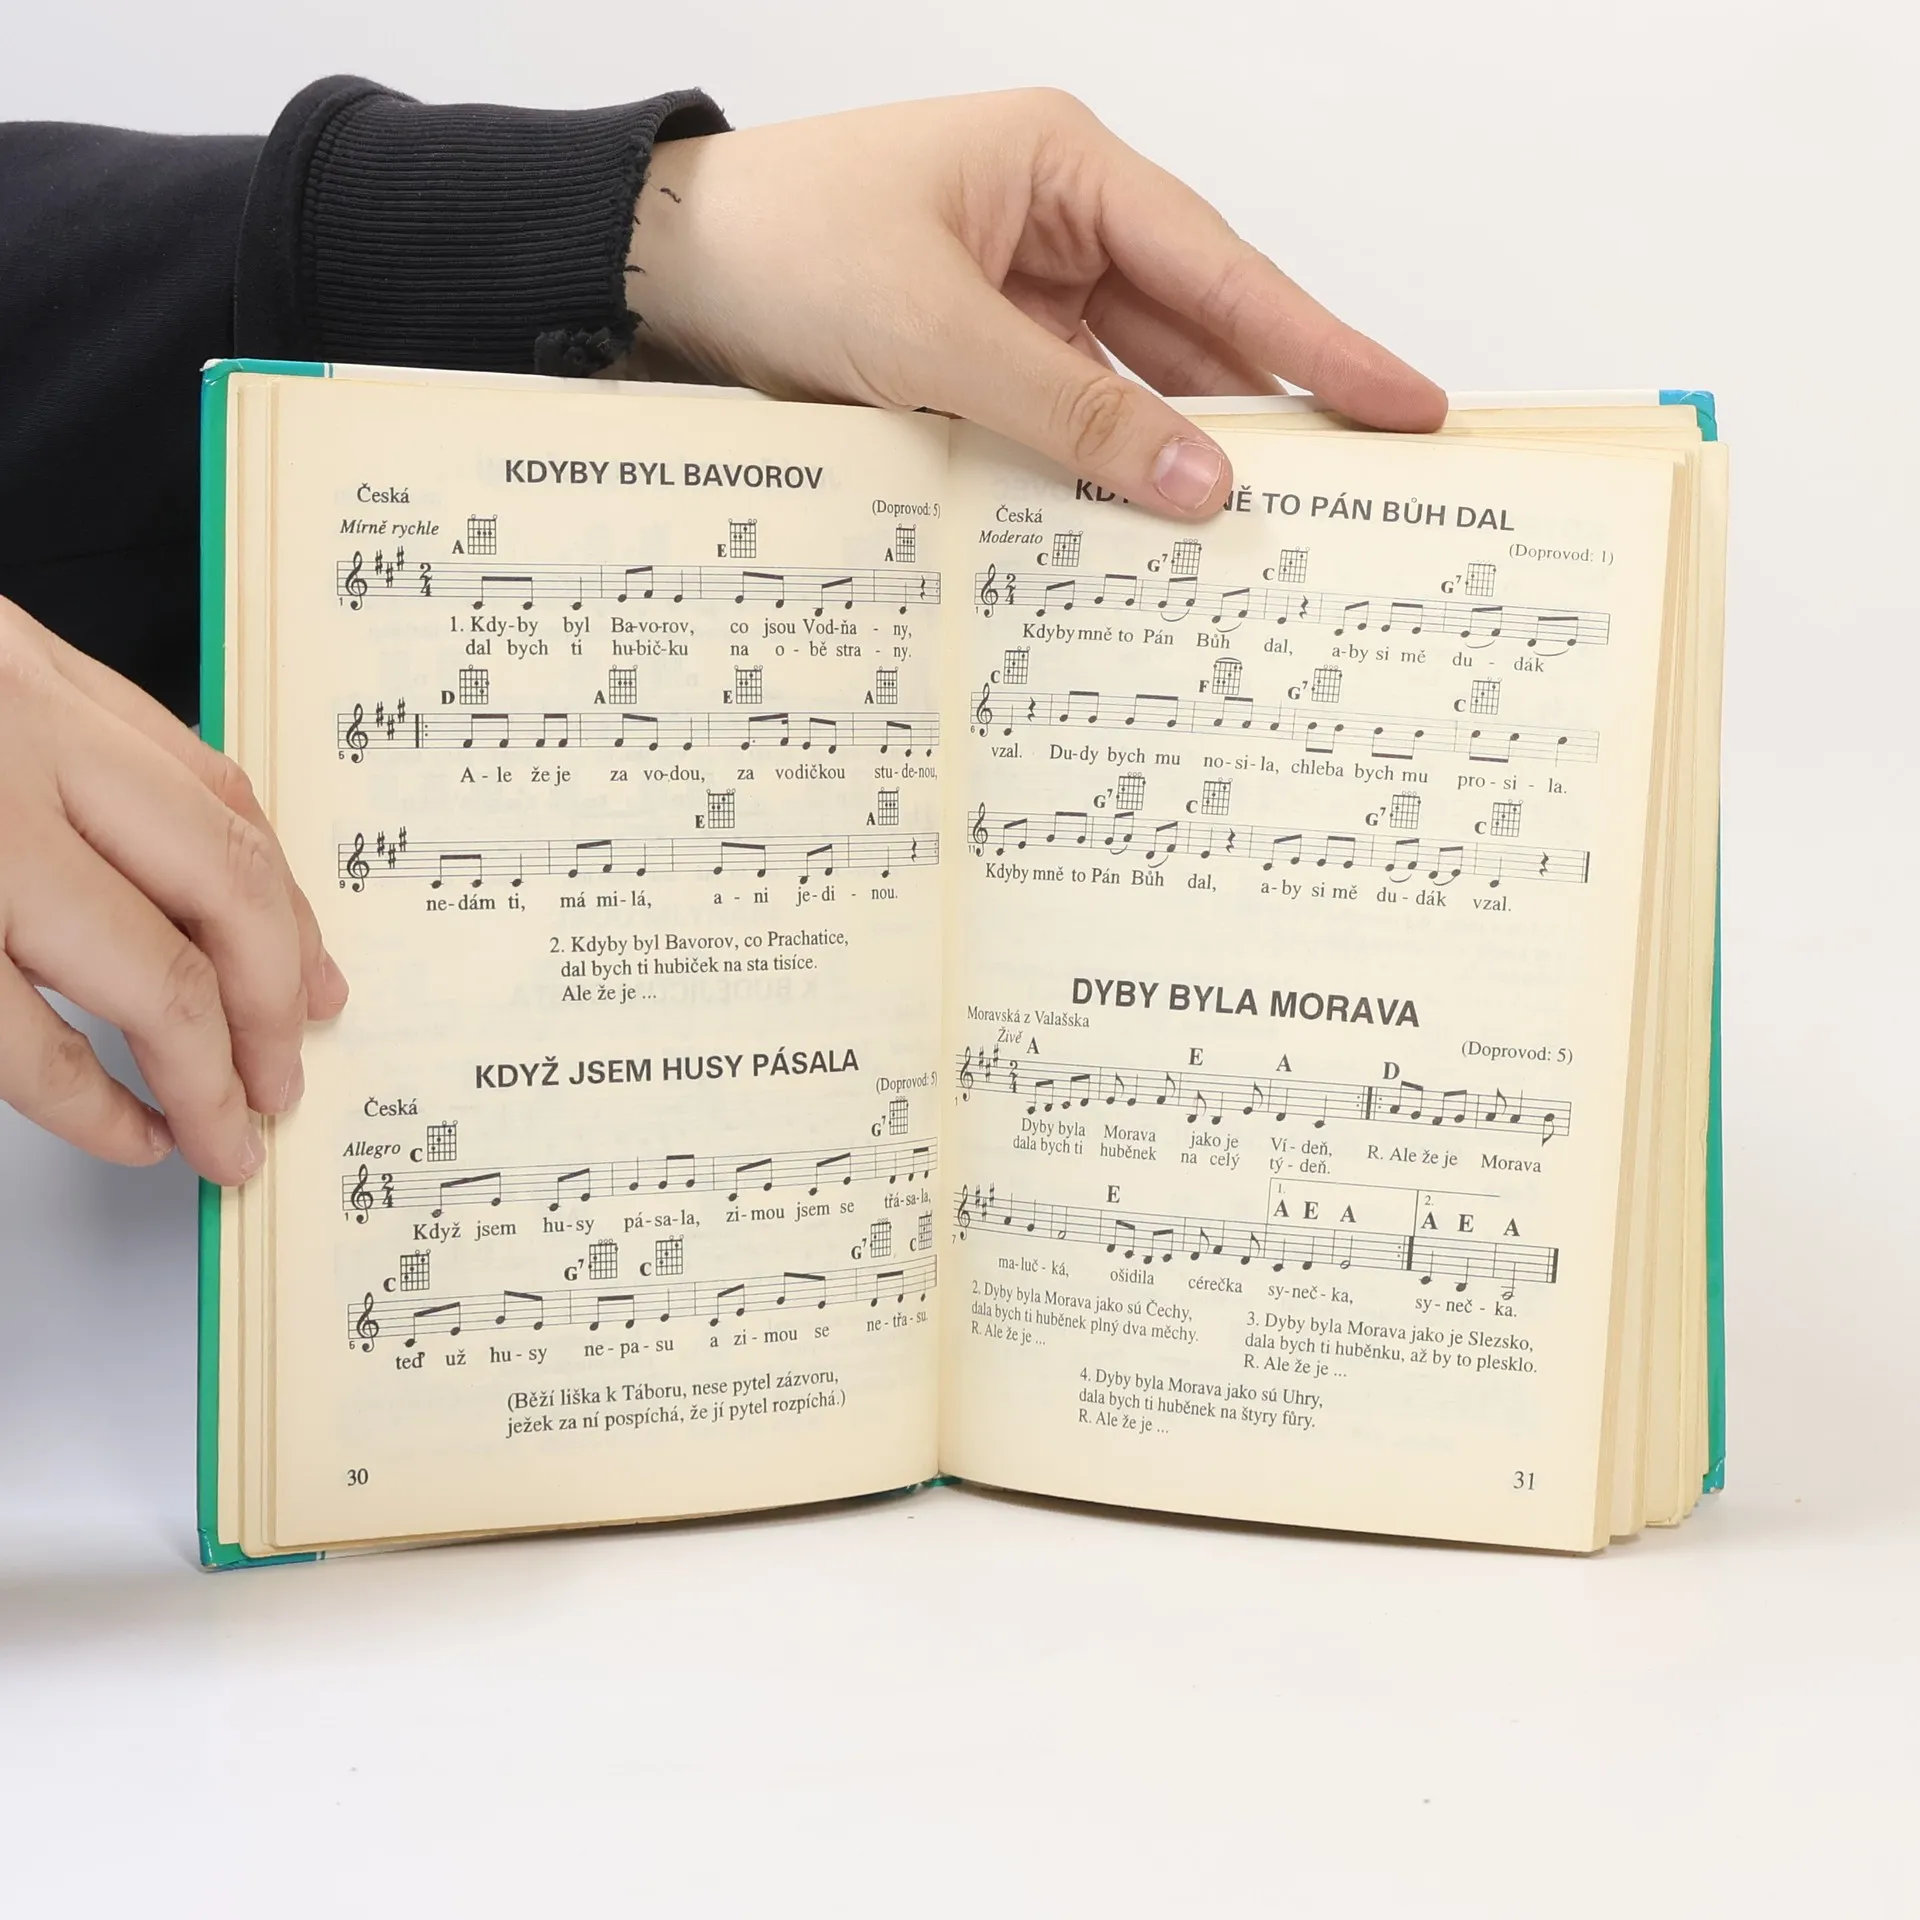 KDYBY BYL BAVOROV
Česká
(Doprovod: 5)
Mírně rychle
A E A
2 4
1
1. Kdy-by byl Ba-vo-rov, co jsou Vod-ňa - ny,
dal bych ti hu-bič-ku na o - bě stra - ny.
D A E A
5
A - le že je za vo-dou, za vodičkou stu-de-nou,
E A
9
ne-dám ti, má mi-lá, a - ni je-di - nou.
2. Kdyby byl Bavorov, co Prachatice,
dal bych ti hubiček na sta tisíce.
Ale že je ...
KDYŽ JSEM HUSY PÁSALA
(Doprovod: 5)
Česká
Allegro C G7
2 4
1
Když jsem hu-sy pá-sa-la, zi-mou jsem se třá-sa-la,
C G7 C G7 C
teď už hu-sy ne-pa-su a zi-mou se ne-třa-su.
(Běží liška k Táboru, nese pytel zázvoru,
ježek za ní pospíchá, že jí pytel rozpíchá.)
30
TO PÁN BŮH DAL
Česká
(Doprovod: 1)
Moderato
C G7 C G7
2 4
1
Kdyby mně to Pán Bůh dal, a-by si mě du - dák
C F G7 C
6
vzal. Du-dy bych mu no-si-la, chleba bych mu pro-si - la.
G7 C G7 C
11
Kdyby mně to Pán Bůh dal, a-by si mě du-dák vzal.
DYBY BYLA MORAVA
Moravská z Valašska
Živě
(Doprovod: 5)
A E A D
2 4
1
Dyby byla Morava jako je Ví-deň, R. Ale že je Morava
dala bych ti huběnek na celý tý-deň.
E 1. A E A 2. A E A
7
ma-luč-ká, ošidila cérečka sy-neč-ka, sy-neč-ka.
2. Dyby byla Morava jako sú Čechy,
dala bych ti huběnek plný dva měchy.
R. Ale že je ...
3. Dyby byla Morava jako je Slezsko,
dala bych ti huběnku, až by to plesklo.
R. Ale že je ...
4. Dyby byla Morava jako sú Uhry,
dala bych ti huběnek na štyry fůry.
R. Ale že je ...
31